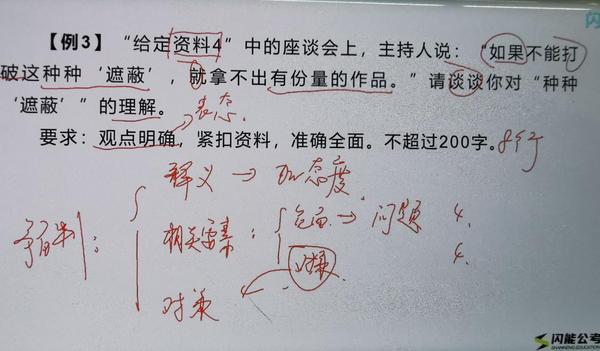 闪
【例3】“给定资料4”中的座谈会上，主持人说：“如果不能打
破这种种‘遮蔽’，就拿不出有份量的作品。”请谈谈你对“种种
‘遮蔽’”的理解。
表态
要求：观点明确，紧扣资料，准确全面。不超过200字。8行
释义 → 加态度
预制：
相关要素：
危害 → 问题 4.
对策 4.
对策
闪能公考
SHANNENG EDUCATION